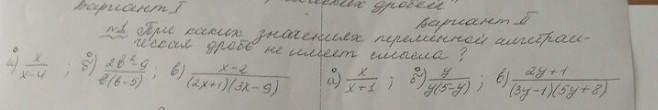 Вариант I дробей"
Вариант II
№1. При каких значениях переменной алгебраи-
ческая дробь не имеет смысла?
а) x/(x-4) ; б) (2b²-9)/(2(b-5)) ; в) (x-2)/((2x+1)(3x-9)) а) x/(x+1) ; б) y/(y(5-y)) ; в) (2y+1)/((3y-1)(5y+8))